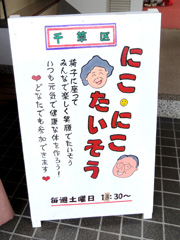 千草区
にこ・にこ
たいそう
椅子に座って
みんなで楽しく笑顔でたいそう
いつも元気で健康な体を作ろう!
❤どなたでも参加できます❤
毎週土曜日 13:30〜